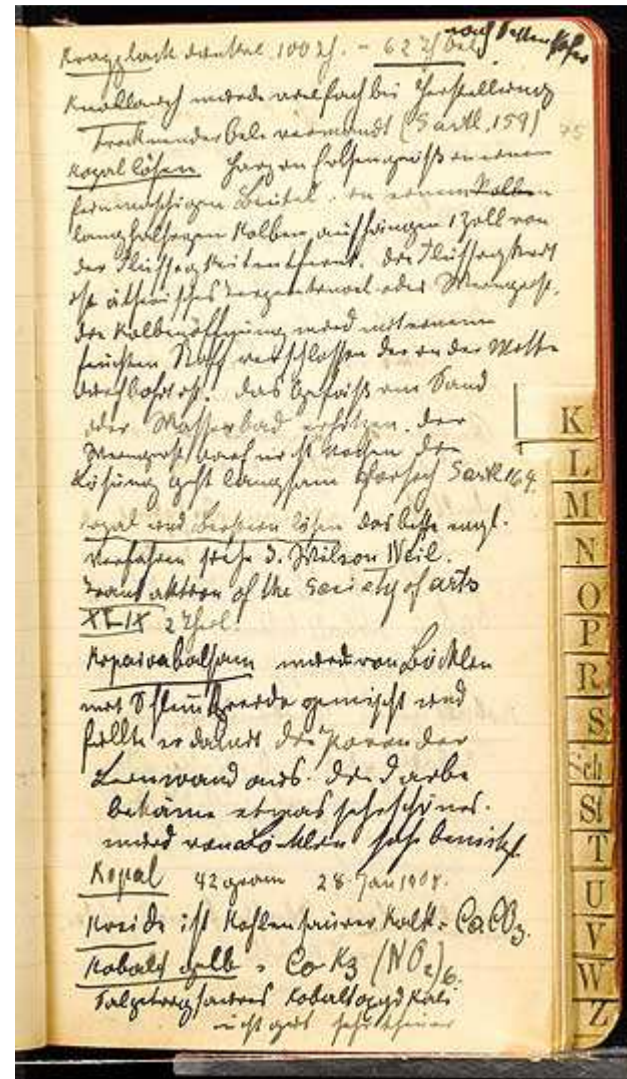 Krapplack dunkel 100 g. - 62 g Oel nach Pettenkofer
Knoblauch wurde vielfach bei Herstellung
trocknender Oele verwandt (Sartl. 159)
75
Kopal lösen Harz in Erbsengröße in einem
feinmaschigen Beutel in einem Kolben
langhalsigen Kolben aufhängen 1 Zoll von
der Flüssigkeit entfernt. die Flüssigkeit
ist ätherisches Terpentinoel oder Weingeist.
die Kolbenöffnung wird mit einem
feuchten Stoff verschlossen der in der Mitte
durchbohrt ist. das Gefäß im Sand
oder Wasserbad erhitzen. der
Weingeist darf nicht kochen die
Lösung geht langsam vor sich Sartl 164.
Kopal und Bernstein lösen das beste engl.
Verfahren siehe J. Wilson Neil.
Transaktion of the Society of arts
XLIX 2 Theil.
Kopaivabalsam wird von Böcklin
mit Schlemmkreide gemischt und
füllte er damit die Poren der
Leinwand aus. die Farbe
bekäme etwas sehr schönes.
wird von Böcklin sehr benützt.
Kopal 42 gram 28. Jan 1908.
Kreide ist Kohlensaurer Kalk = CaCO3.
Kobalt gelb = Co K3 (NO2)6.
Salpetrigsaures Kobaltoxyd Kali
nicht gut sehr theuer
K
L
M
N
O
P
R
S
Sch
St
T
U
V
W
Z